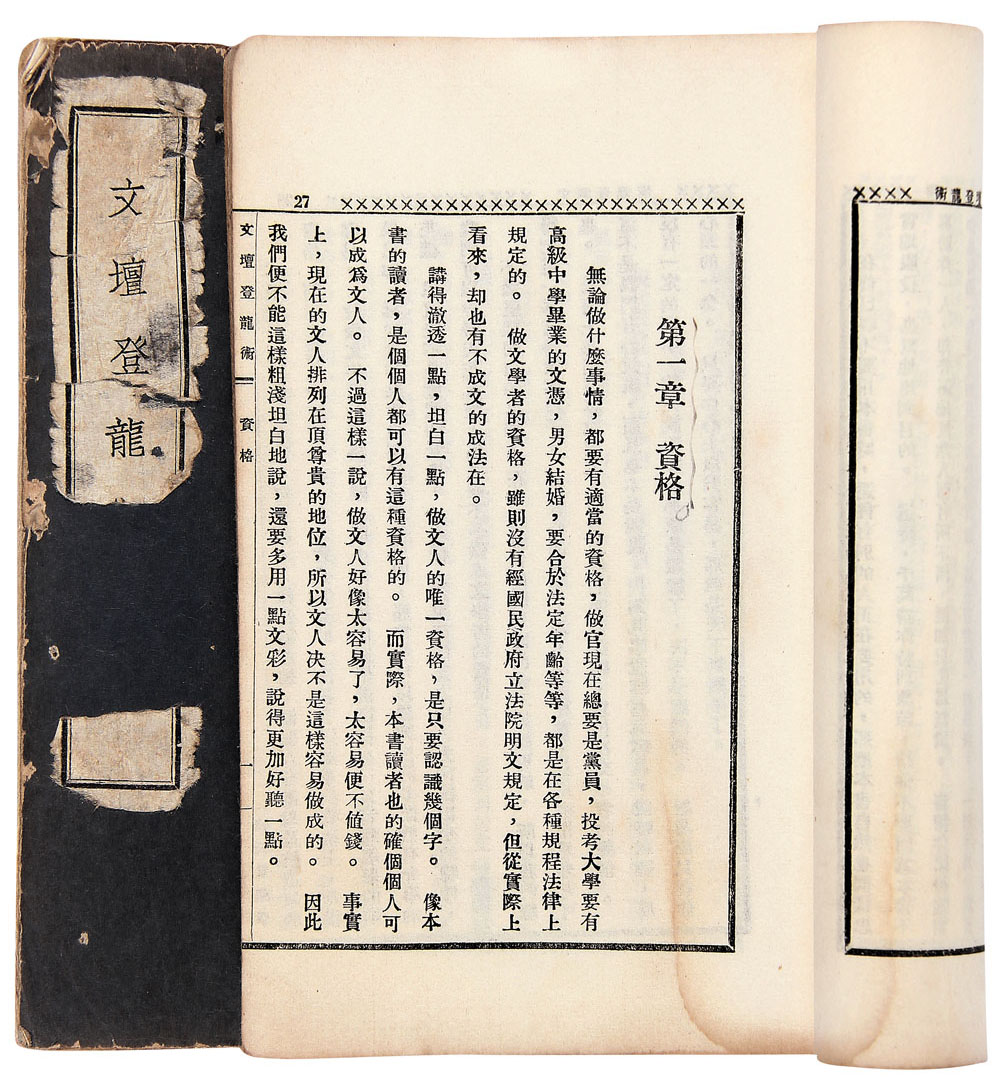 文壇登龍
27
第一章 資格
無論做什麼事情，都要有適當的資格，做官現在總要是黨員，投考大學要有
高級中學畢業的文憑，男女結婚，要合於法定年齡等等，都是在各種規程法律上
規定的。 做文學者的資格，雖則沒有經國民政府立法院明文規定，但從實際上
看來，却也有不成文的成法在。
講得澈透一點，坦白一點，做文人的唯一資格，是只要認識幾個字。 像本
書的讀者，是個個人都可以有這種資格的。 而實際，本書讀者也的確個個人可
以成爲文人。 不過這樣一說，做文人好像太容易了，太容易便不値錢。 事實
上，現在的文人排列在頂尊貴的地位，所以文人決不是這樣容易做成的。 因此
我們便不能這樣粗淺坦白地說，還要多用一點文彩，說得更加好聽一點。
文壇登龍術 資格 一
登龍術